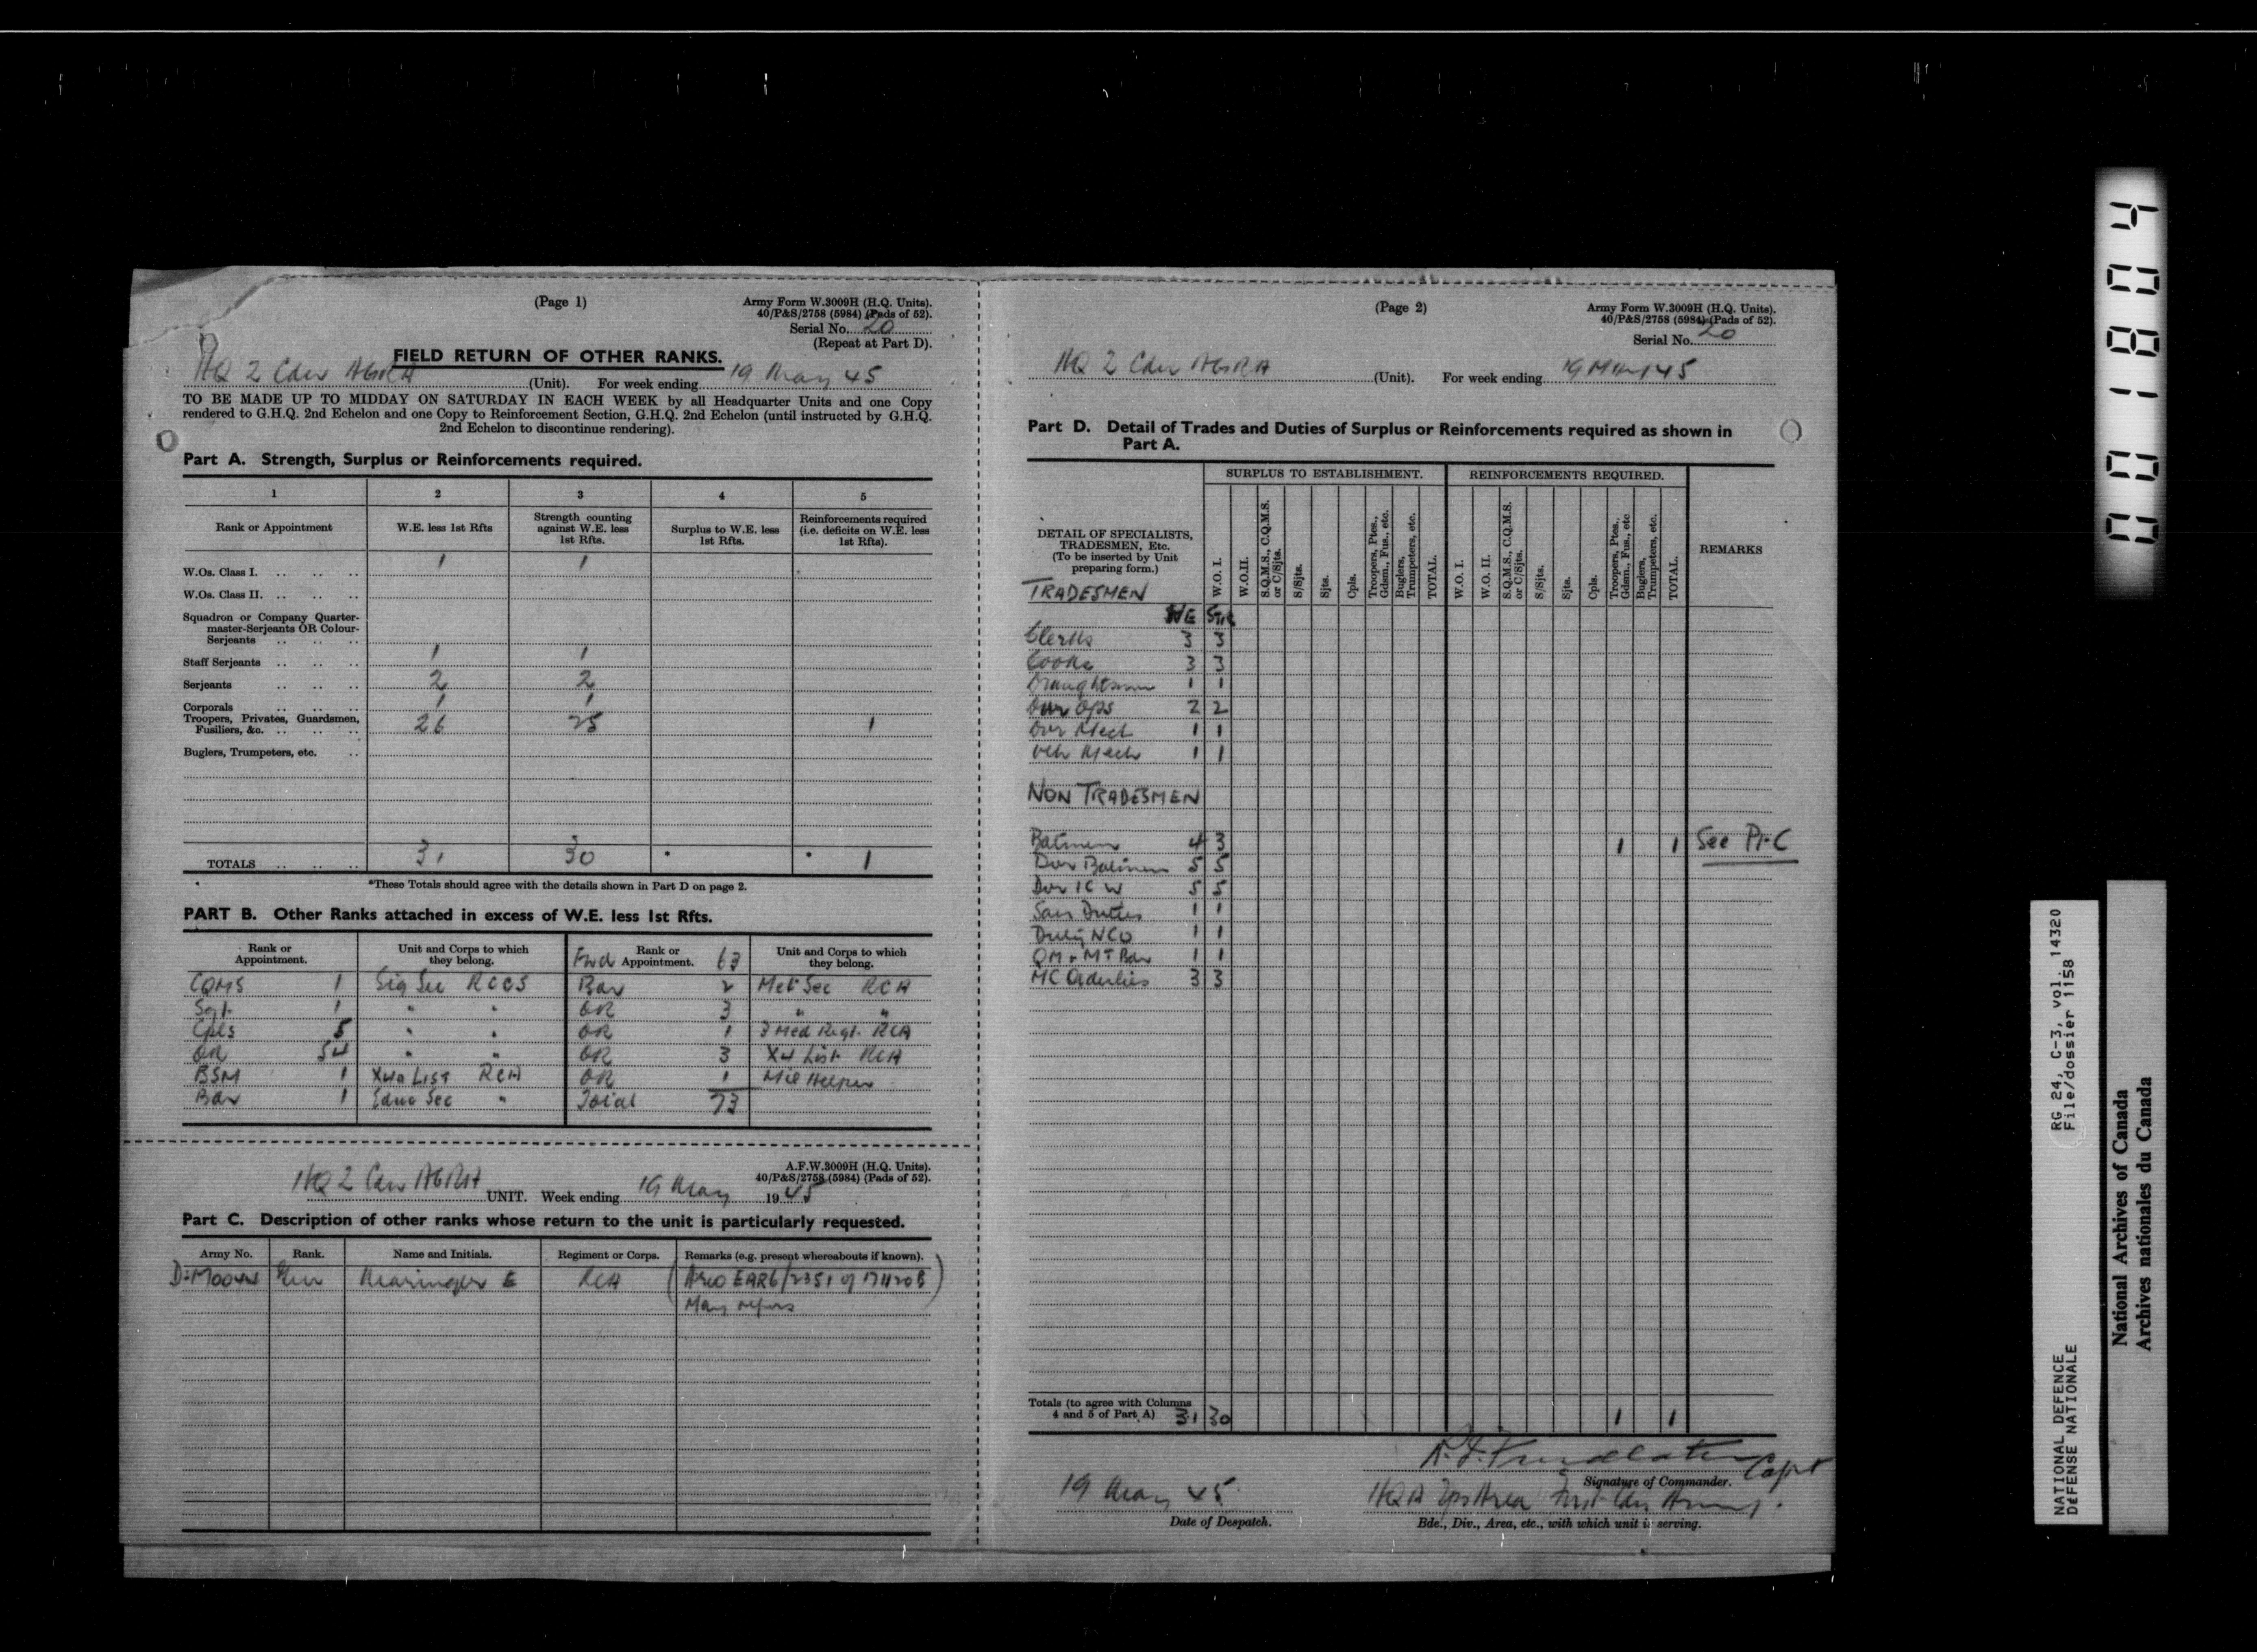 (Page 1)
Army Form W.3009H (H.Q. Units).
40/P&S/2758 (5984) (Pads of 52).
Serial No. 20
(Repeat at Part D).
FIELD RETURN OF OTHER RANKS.
HQ 2 Cdn AGRA (Unit). For week ending 19 May 45
TO BE MADE UP TO MIDDAY ON SATURDAY IN EACH WEEK by all Headquarter Units and one Copy
rendered to G.H.Q. 2nd Echelon and one Copy to Reinforcement Section, G.H.Q. 2nd Echelon (until instructed by G.H.Q.
2nd Echelon to discontinue rendering).
Part A. Strength, Surplus or Reinforcements required.
1 2 3 4 5
Rank or Appointment
W.E. less 1st Rfts
Strength counting
against W.E. less
1st Rfts.
Surplus to W.E. less
1st Rfts.
Reinforcements required
(i.e. deficits on W.E. less
1st Rfts).
W.Os. Class I. .. .. .. 1 1
W.Os. Class II. .. .. ..
Squadron or Company Quarter-
master-Serjeants OR Colour-
Serjeants .. .. ..
Staff Serjeants .. .. .. 1 1
Serjeants .. .. .. 2 2
Corporals .. .. .. 1 1
Troopers, Privates, Guardsmen,
Fusiliers, &c. .. .. .. 26 25 1
Buglers, Trumpeters, etc. ..
TOTALS .. .. .. 31 30 * * 1
*These Totals should agree with the details shown in Part D on page 2.
PART B. Other Ranks attached in excess of W.E. less 1st Rfts.
Rank or
Appointment.
Unit and Corps to which
they belong.
Fwd Rank or
Appointment. 63
Unit and Corps to which
they belong.
CQMS 1 Sig Sec RCCS Bdr 2 Met Sec RCA
Sgt 1 " " OR 3 " "
Cpls 5 " " OR 1 3 Med Regt RCA
OR 54 " " OR 3 X4 List RCA
BSM 1 X4a List RCA OR 1 Mil Helper
Bdr 1 Educ Sec " Total 73
A.F.W.3009H (H.Q. Units).
40/P&S/2758 (5984) (Pads of 52).
HQ 2 Cdn AGRA UNIT. Week ending 19 May 1945
Part C. Description of other ranks whose return to the unit is particularly requested.
Army No. Rank. Name and Initials. Regiment or Corps. Remarks (e.g. present whereabouts if known).
Gnr E RCA
May refers
(Page 2)
Army Form W.3009H (H.Q. Units).
40/P&S/2758 (5984) (Pads of 52).
Serial No. 20
HQ 2 Cdn AGRA (Unit). For week ending 19 May 45
Part D. Detail of Trades and Duties of Surplus or Reinforcements required as shown in
Part A.
SURPLUS TO ESTABLISHMENT. REINFORCEMENTS REQUIRED.
DETAIL OF SPECIALISTS,
TRADESMEN, Etc.
(To be inserted by Unit
preparing form.)
W.O. I.
W.O.II.
S.Q.M.S., C.Q.M.S.
or C/Sjts.
S/Sjts.
Sjts.
Cpls.
Troopers, Ptes.,
Gdsm., Fus., etc.
Buglers,
Trumpeters, etc.
TOTAL.
W.O. I.
W.O. II.
S.Q.M.S., C.Q.M.S.
or C/Sjts.
S/Sjts.
Sjts.
Cpls.
Troopers, Ptes.,
Gdsm., Fus., etc
Buglers,
Trumpeters, etc.
TOTAL.
REMARKS
TRADESMEN
WE Str
Clerks 3 3
Cooks 3 3
Draughtsman 1 1
Dvr Ops 2 2
Dvr Mech 1 1
Veh Mech 1 1
NON TRADESMEN
Batmen 4 3 1 1 See Pt C
Dvr Batmen 5 5
Dvr IC W 5 5
San Duties 1 1
Duty NCO 1 1
QM & MT Bdr 1 1
MC Orderlies 3 3
Totals (to agree with Columns
4 and 5 of Part A) 31 30 1 1
Capt
Signature of Commander.
19 May 45
Date of Despatch.
HQ A Tps Area First Cdn Army.
Bde., Div., Area, etc., with which unit is serving.
001804
RG 24, C-3, vol. 14320
File/dossier 1158
NATIONAL DEFENCE
DEFENSE NATIONALE
National Archives of Canada
Archives nationales du Canada